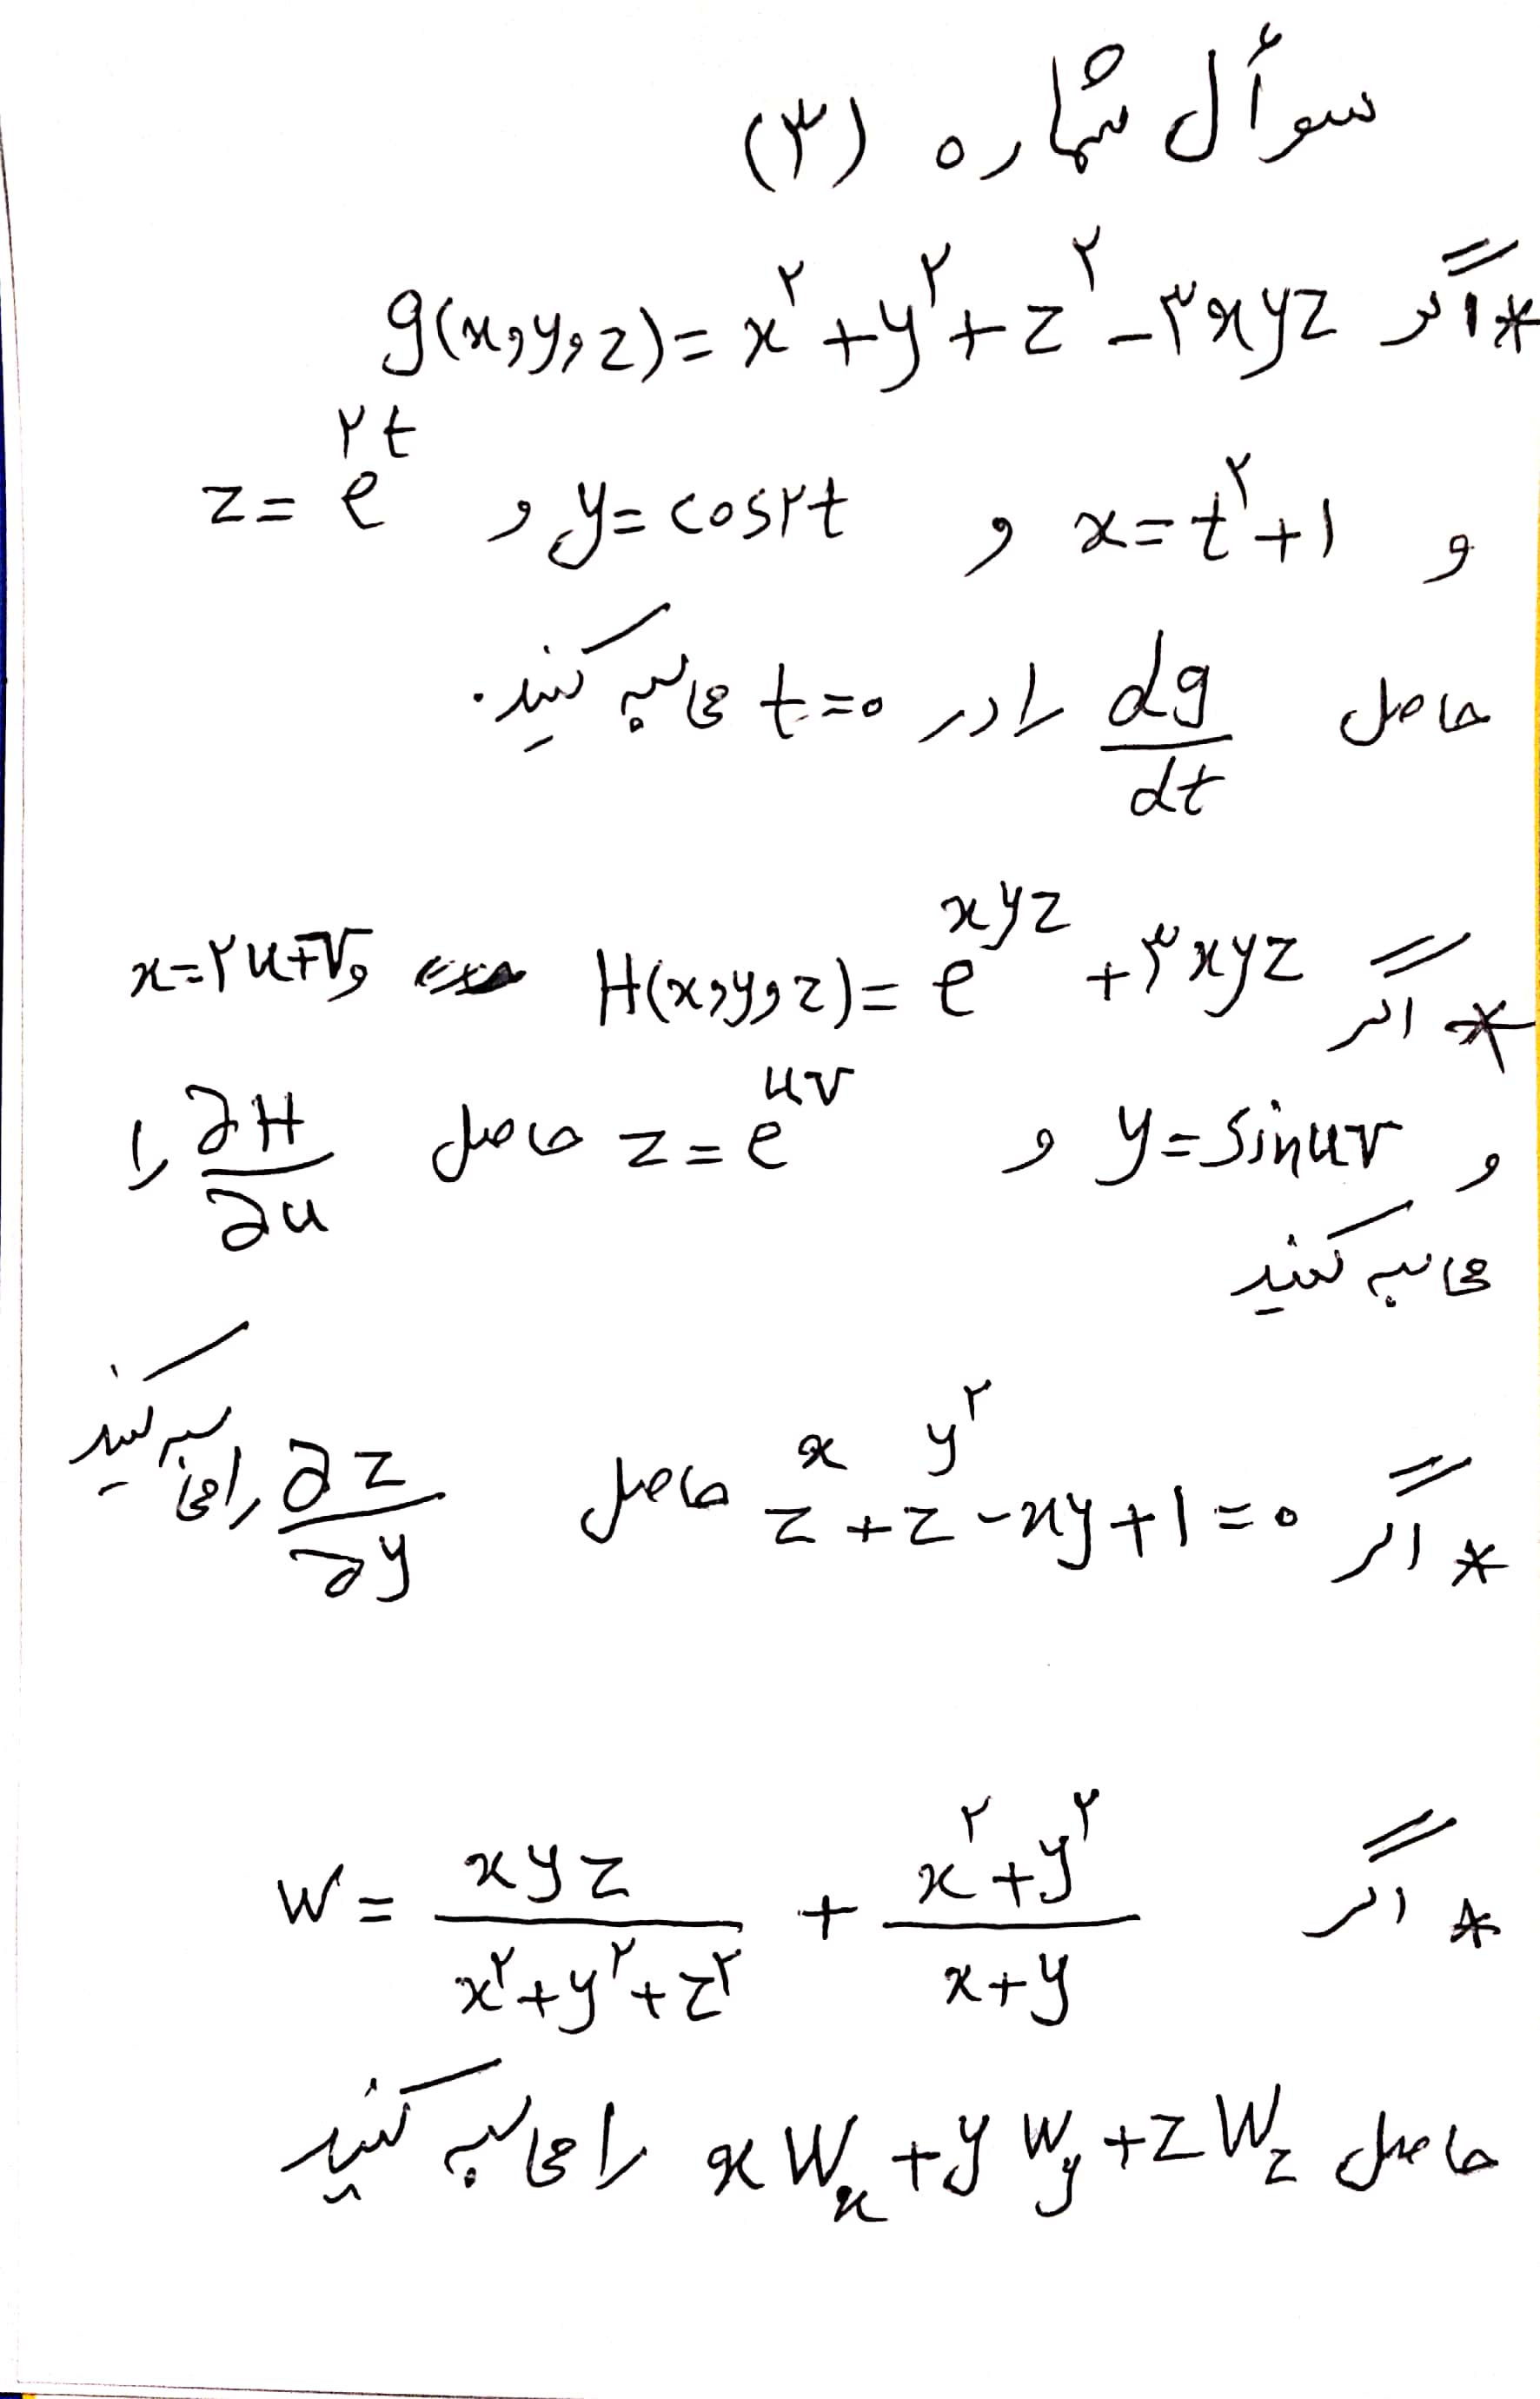 سوأل شماره (۳)
* اگر g(x,y,z)= x^۲ + y^۲ + z^۲ - ۳xyz
و x = t^۲ + ۱ و y = cos۲t و z = e^{۲t}
حاصل dg/dt را در t=۰ محاسبه کنید.
* اگر H(x,y,z)= e^{xyz} + ۳xyz x=۲u+v و
و y = sinuv و z = e^{uv} حاصل ∂H/∂u را
محاسبه کنید
* اگر z^x + z^{y^۲} - xy + ۱ = ۰ حاصل ∂z/∂y را محاسبه کنید
* اگر W = xyz/(x^۲+y^۲+z^۲) + (x^۲+y^۲)/(x+y)
حاصل xW_x + yW_y + zW_z را محاسبه کنید